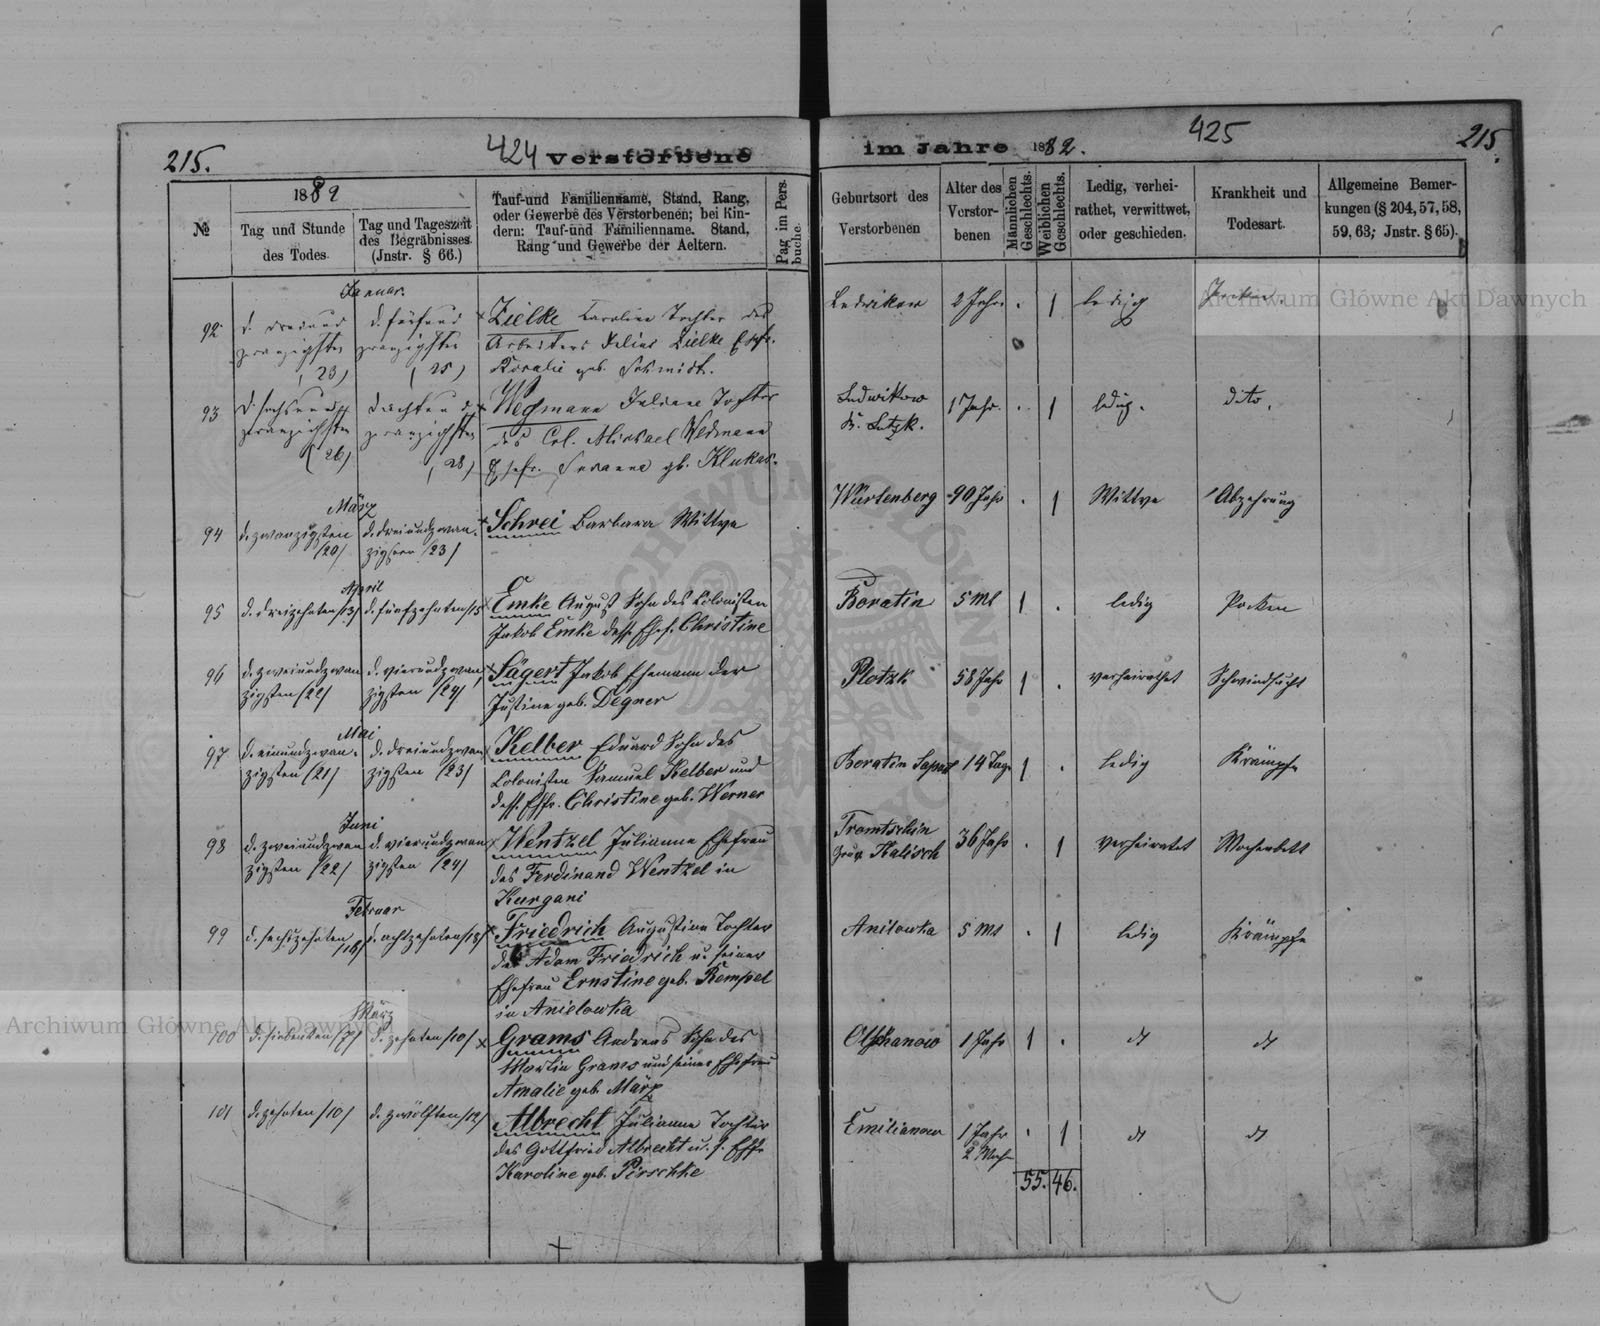 215.
424
Verstorbene
im Jahre 1882.
425
215.
№
1882
Tag und Stunde
des Todes.
Tag und Tageszeit
des Begräbnisses.
(Instr. § 66.)
Tauf-und Familienname, Stand, Rang,
oder Gewerbe des Verstorbenen; bei Kin-
dern: Tauf-und Familienname. Stand,
Rang und Gewerbe der Aeltern.
Pag im Pers.
buche.
Geburtsort des
Verstorbenen
Alter des
Verstor-
benen
Männlichen
Geschlechts.
Weiblichen
Geschlechts.
Ledig, verhei-
rathet, verwittwet,
oder geschieden.
Krankheit und
Todesart.
Allgemeine Bemer-
kungen (§ 204, 57, 58,
59, 63; Jnstr. § 65).
Januar.
92. d. dreiund d. fünfund Zielke Caroline Tochter des Ludwikow 2 Jahr. . 1 ledig
zwanzigsten zwanzigsten Arbeiters Julius Zielke Ehfr.
(23) (25) Rosalie geb. Schmidt.
93. d. sechsund d. achtund Wedmann Juliane Tochter Ludwikow 1 Jahr. . 1 ledig. dito.
zwanzigsten zwanzigsten des Col. Michael Wedmann
(26) (28) Ehefr. Susanna gb. Klukas.
März
94 d. zwanzigsten d. dreiundzwan- Schrei Barbara Wittwe Würtenberg 90 Jahr . 1 Wittwe Abzehrung
/20/ zigsten /23/
April
95 d. dreizehnten /13/ d. fünfzehnten /15/ Emke August Sohn des Colonisten Boratin 5 Mt 1 . ledig Pocken
Jakob Emke dess. Ehef. Christine
96 d. zweiundzwan d. vierundzwan Sägert Jakob Ehemann der Plotzk 58 Jahr 1 . verheirathet Schwindsucht
zigsten /22/ zigsten /24/ Justine geb. Degner
Mai
97 d. einundzwan- d. dreiundzwan Kelber Eduard Sohn des Boratin 14 Tage 1 . ledig Krämpfe
zigsten /21/ zigsten /23/ Colonisten Samuel Kelber und
dess. Ehfr. Christine geb. Werner
Juni
98 d. zweiundzwan d. vierundzwan Wentzel Julianne Ehefrau Tromtschin 36 Jahr . 1 verheiratet Wochenbett
zigsten /22/ zigsten /24/ des Ferdinand Wentzel in Kalisch
Kurgani
Februar
99 d. sechszehnten /16/ d. achtzehnten /18/ Friedrich Augustine Tochter Anilowka 5 Mt . 1 ledig Krämpfe
des Adam Friedrich u. seiner
Ehefrau Ernstine geb. Rempel
in Anielowka
März
100 d. siebenten /7/ d. zehnten /10/ Grams Andreas Sohn des Olschanow 1 Jahr 1 . dt dt
Martin Grams und seiner Ehefrau
Amalie geb. März
101 d. zehnten /10/ d. zwölften /12/ Albrecht Julianna Tochter Emilianow 1 Jahr . 1 dt dt
des Gottfried Albrecht u. s. Ehfr 2 Moch
Karoline geb. Pirschke
55. 46.
Archiwum Główne Akt Dawnych
Archiwum Główne Akt Dawnych